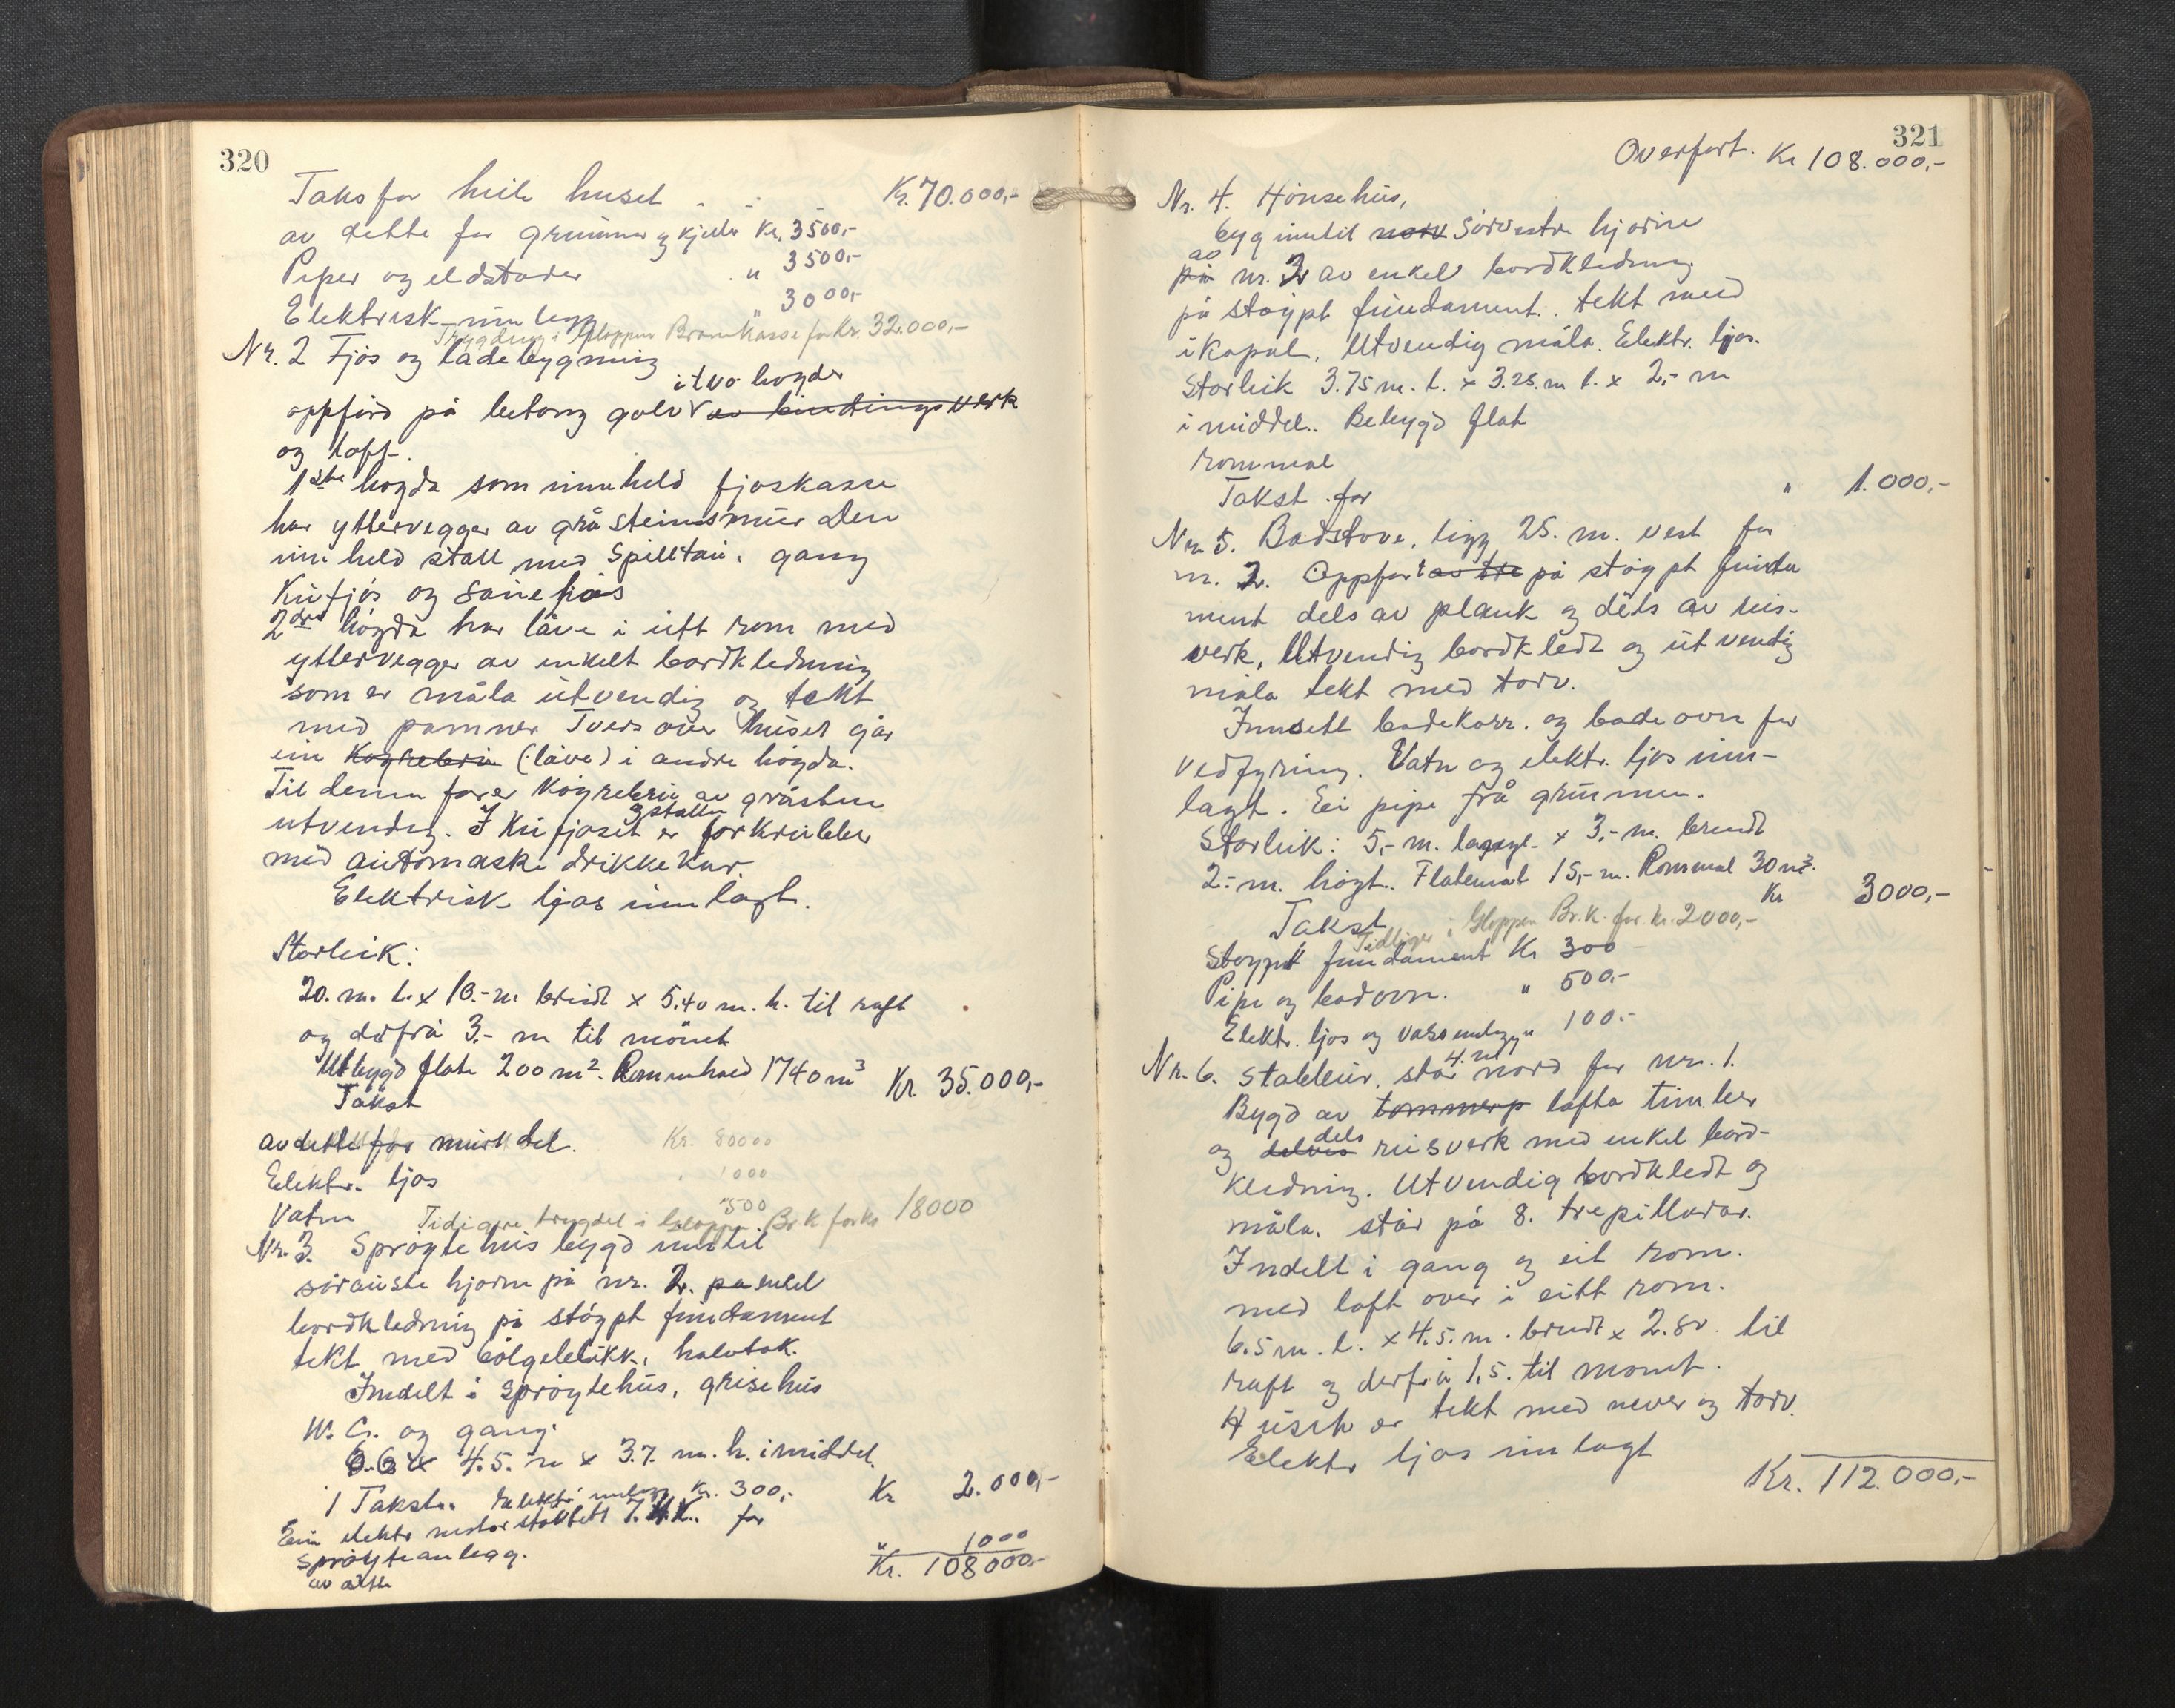 320
Taks for heile huset . . Kr. 70.000,-
av dette for grunnmur og kjeller Kr. 3500,-
Piper og eldstader . " 3500,-
Elektrisk innlegg " 3000,-
Trygding i Gloppen Brannkasse for Kr. 32.000,-
Nr. 2 Fjøs og ladebygning
i tvo høgder
oppførd på betong golv av bindingsverk
og loft.
1ste høgda som inneheld fjøskasse
har yttervegger av gråsteinsmur Den
inneheld stall med spilltau, gang
Kufjøs og sauefjøs
2dre høgda har låve i eitt rom med
yttervegger av enkelt bordkledning
som er måla utvendig og tekt
med panner Tvers over huset gjår
ein Køyrebru (låve) i andre høgda.
Til denne fører Køyrebru av gråstein
og stallen
utvendig. I Kufjøset er forkrubber
med automaske drikkekar.
Elektrisk ljos innlagt.
Storleik:
20. m. l. x 10.- m breidt x 5.40 m. h. til raft
og derfrå 3.- m til mønet
Utbygd flate 200 m². Rominhald 1740 m³
Takst Kr. 35.000,-
av dette for murt del. Kr. 80000
Elektr. ljos 1000
Vatn 500
Tidigare trygdet i Gloppen Br K for kr 18000
Nr. 3. Sprøytehus bygd inntil
søraustre hjørne på nr. 2. på enkel
bordkledning på støypt fundament
tekt med bølgeblikk, halvtak.
Inndelt i sprøytehus, grisehus
W. C. og gang.
6.6 x 4.5. m x 3.7. m. h. i middel.
1 Takst. Elektr. innlegg Kr. 300,- Kr 2.000,-
Ein elektr motor støvtett 7. H.K. for
sprøyteanlegg. " 1000
av dette Kr. 108000,-
321
Overført. Kr 108.000,-
Nr. 4. Hønsehus,
byg inntil norv Sørvestre hjørne
av
på nr. 2 av enkel bordkledning
på støypt fundament. tekt med
ikopal, Utvendig måla. Elektr. ljos.
Storleik 3.75 m. l. x 3.25. m b. x 2,- m
i middel. Bebygd flat
rommål
Takst for " 1.000,-
Nr. 5. Badstove, ligg 25. m. vest for
nr. 2. Oppført av tre på støypt funda
ment dels av plank og dels av reis-
verk, Utvendig bordkledt og utvendig
måla tekt med torv.
Innsett badekarr. og badeovn for
vedfyring. Vatn og elektr. ljos inn-
lagt. Ei pipe frå grunnen.
Storleik: 5,- m. lang x 3,- m. breidt
2.- m. høgt. Flatemål 15,- m. Rommål 30 m³.
Takst Kr 3000,-
Tidligere i Gloppen Br.K. for Kr. 2000,-
Støypt fundament Kr 300
Pipe og badovn. " 500.-
Elektr. ljos og vassinnlegg " 100.-
Nr. 6. Stabbur, står 4. m nord for nr. 1.
Bygd av tømmerp lafta timber
dels
og delvis reisverk med enkel bord-
kledning. Utvendig bordkledt og
måla. står på 8. trepillarar.
Inndelt i gang og eit rom.
med loft over i eitt rom.
6.5 m. l. x 4.5. m. breidt x 2.80. til
raft og derfrå 1,5. til mønet.
Huset er tekt med never og torv.
Elektr ljos innlagt
Kr. 112.000,-